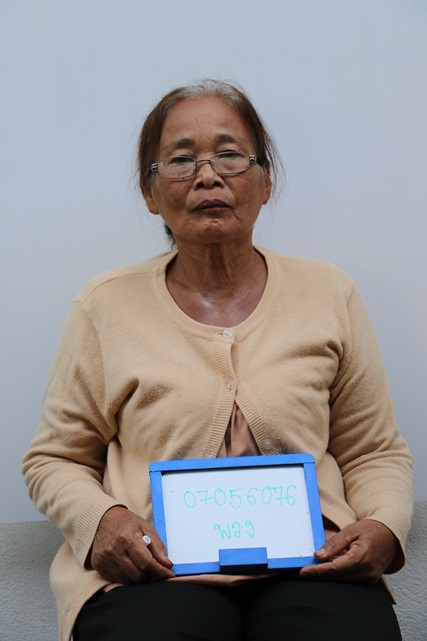 07056076
พวง